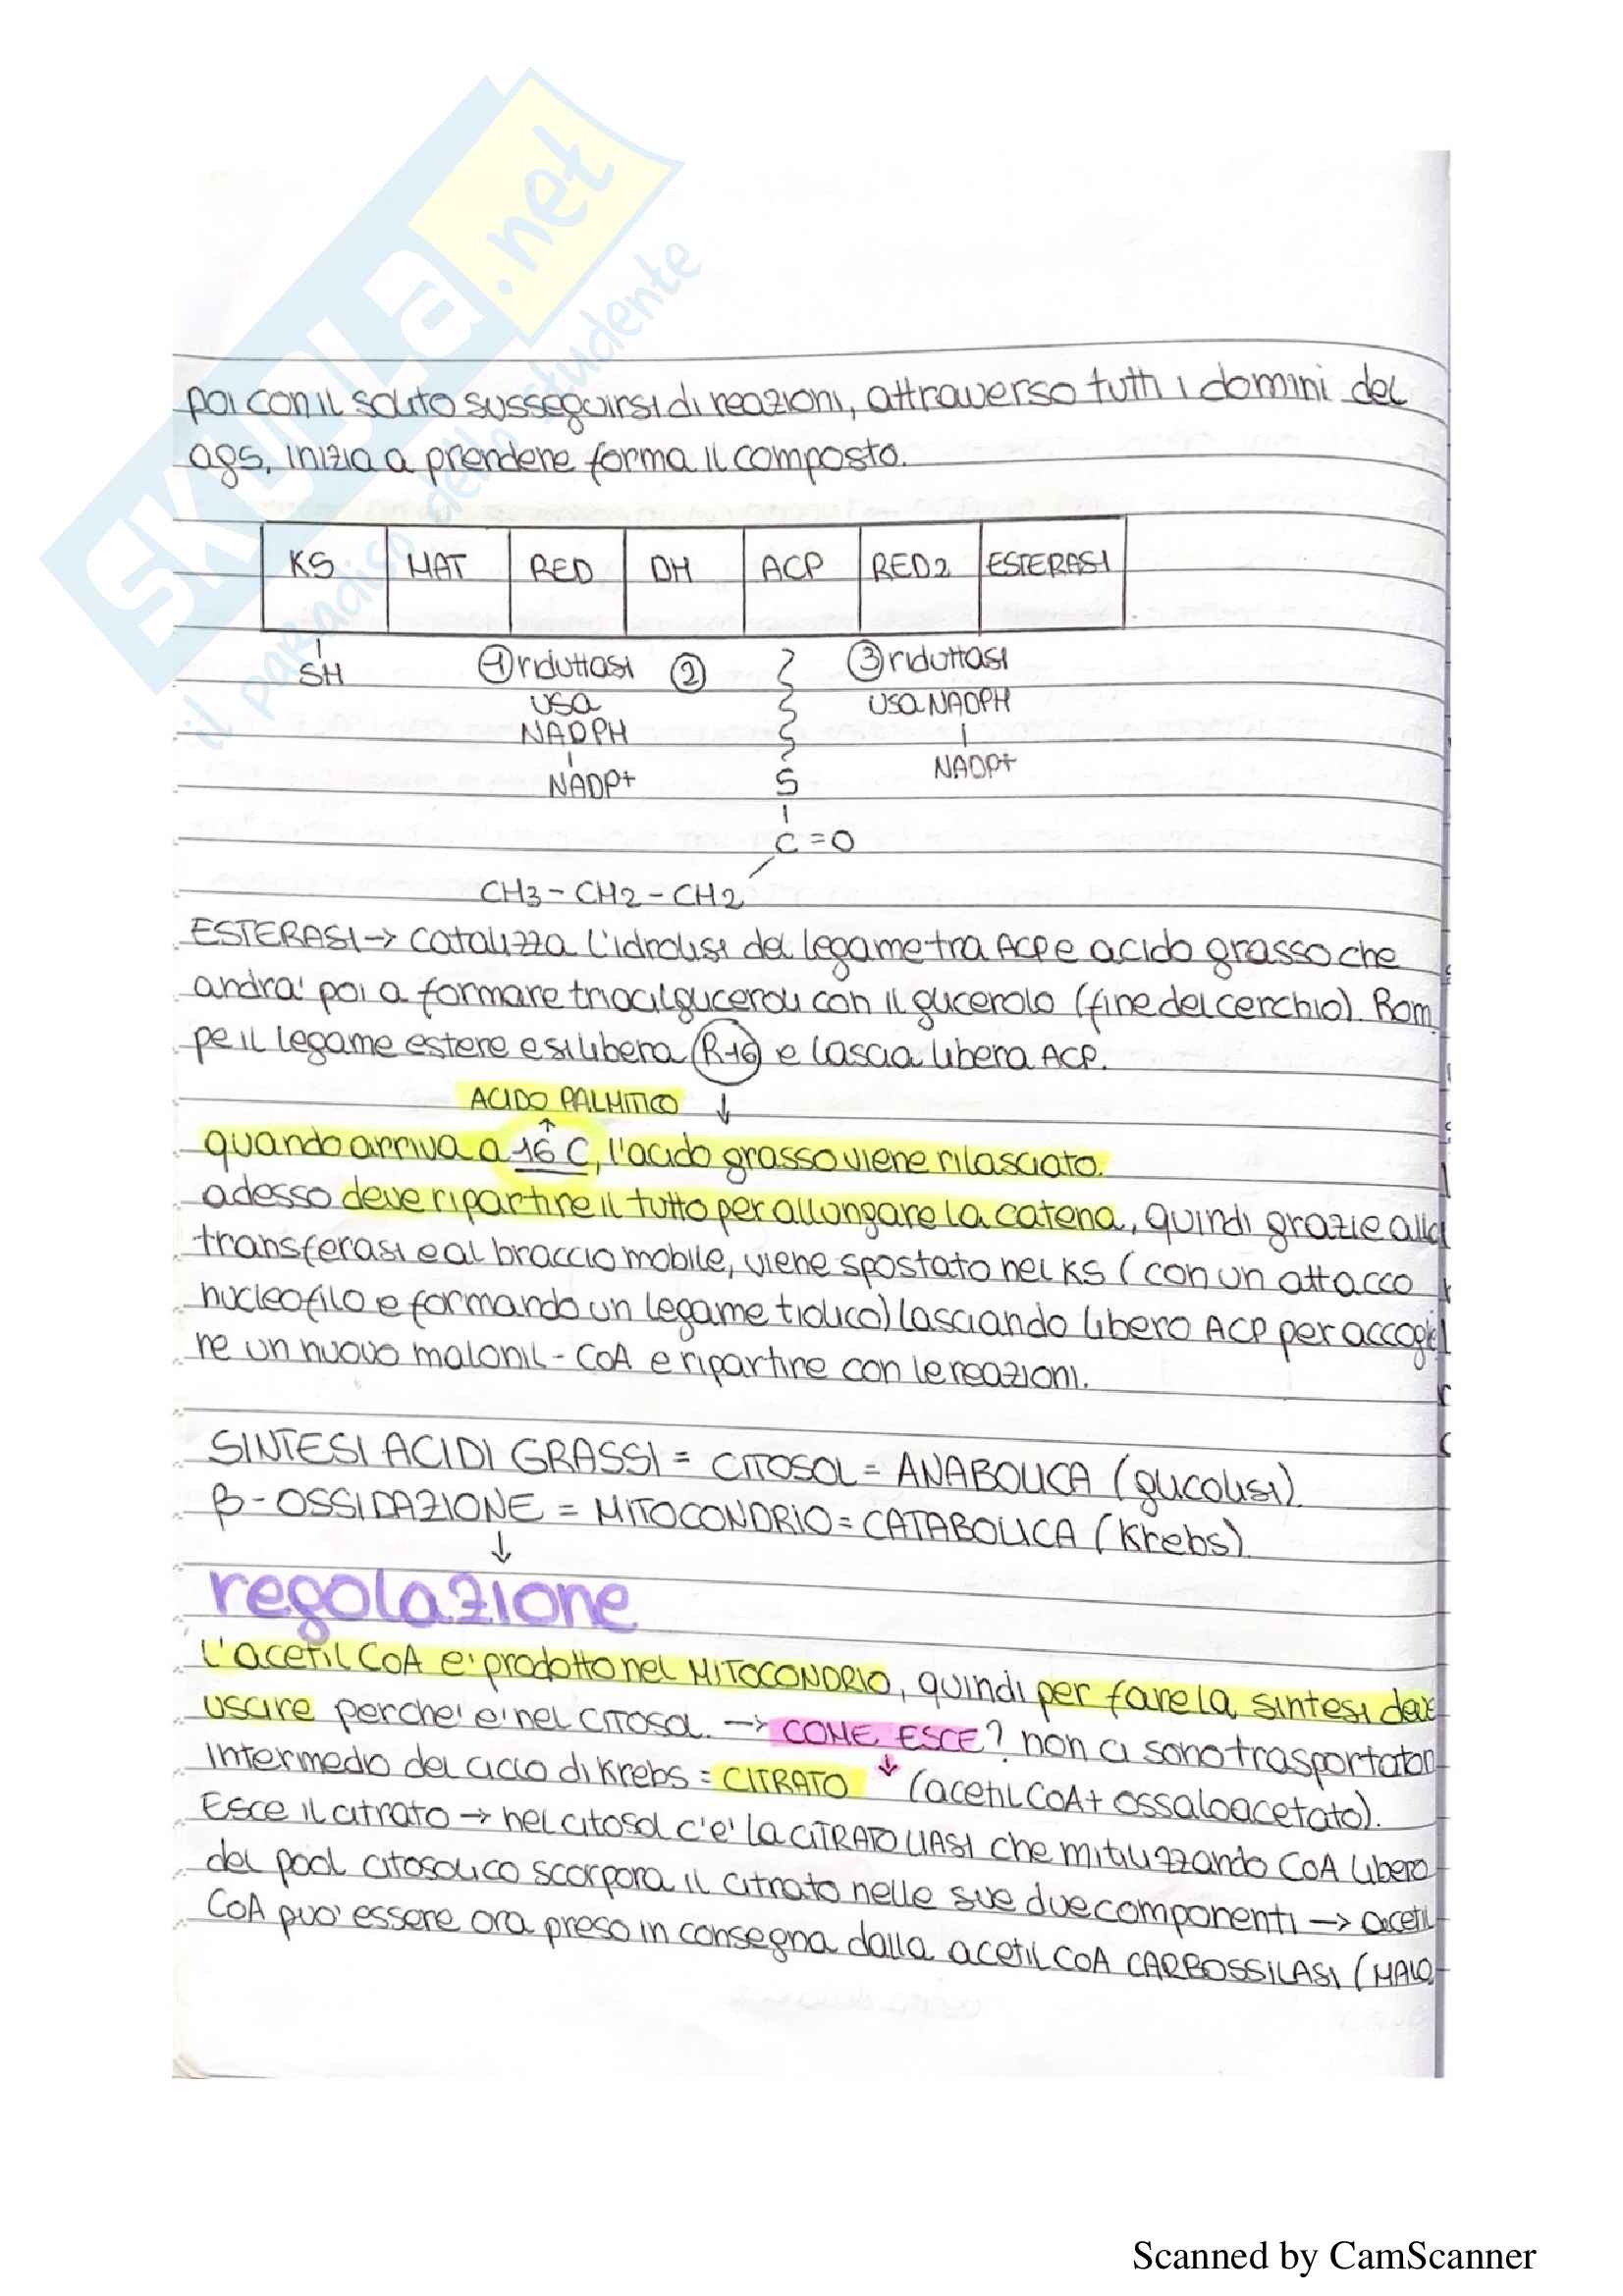 SKUOLA.net
il paradiso dello studente
poi con il solito susseguirsi di reazioni, attraverso tutti i domini del
ags, inizia a prendere forma il composto.
KS MAT RED DH ACP RED2 ESTERASI
SH ① riduttasi ② ③ riduttasi
usa usa NADPH
NADPH
NADP+ NADP+
S
C=O
CH3-CH2-CH2
ESTERASI → catalizza l'idrolisi del legame tra ACP e acido grasso che
andra' poi a formare triacilgliceroli con il glicerolo (fine del cerchio). Rom
pe il legame estere e si libera R-16 e lascia libera ACP.
ACIDO PALMITICO ↓
↑
quando arriva a 16 C, l'acido grasso viene rilasciato.
adesso deve ripartire il tutto per allungare la catena, quindi grazie alla
transferasi e al braccio mobile, viene spostato nel KS (con un attacco
nucleofilo e formando un legame tiolico) lasciando libero ACP per accoglie
re un nuovo malonil-CoA e ripartire con le reazioni.
SINTESI ACIDI GRASSI = CITOSOL = ANABOLICA (glicolisi)
β-OSSIDAZIONE = MITOCONDRIO = CATABOLICA (Krebs)
↓
regolazione
l'acetil CoA e' prodotto nel MITOCONDRIO, quindi per fare la sintesi deve
uscire perche' e' nel CITOSOL. → COME ESCE? non ci sono trasportatori
intermedio del ciclo di Krebs = CITRATO ↓ (acetil CoA + ossaloacetato).
Esce il citrato → nel citosol c'e' la CITRATO LIASI che mitilizzando CoA libero
del pool citosolico scorpora il citrato nelle sue due componenti → acetil
CoA puo' essere ora preso in consegna dalla acetil CoA CARBOSSILASI (MALO
Scanned by CamScanner